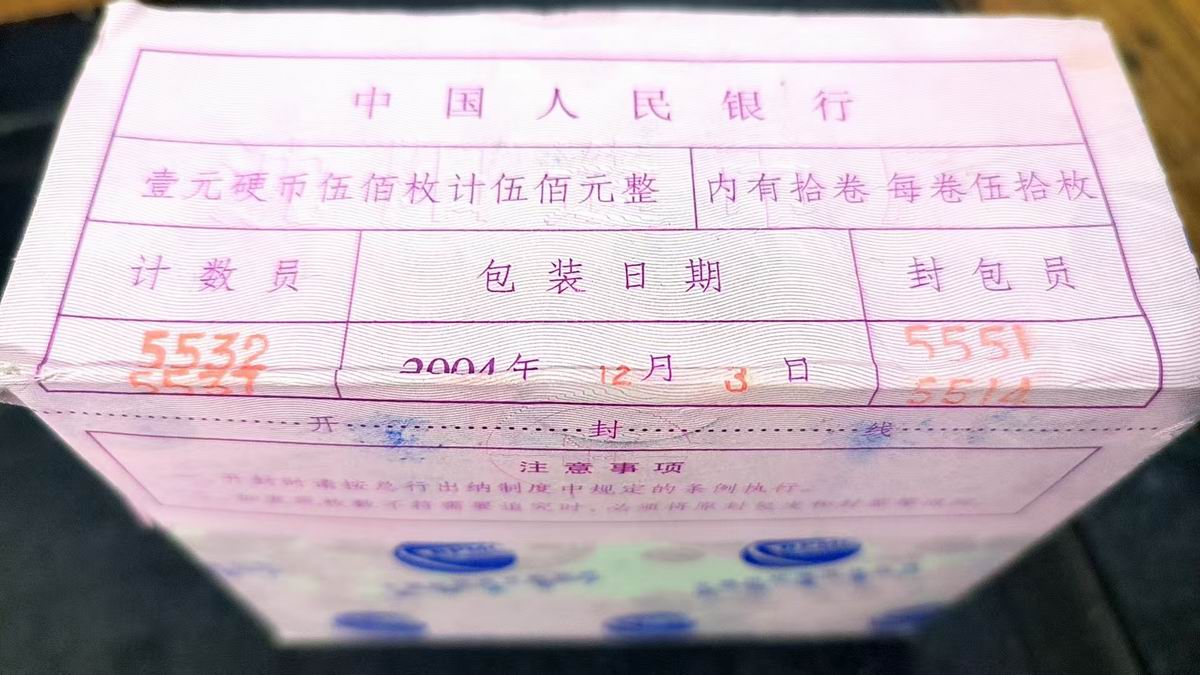 中国人民银行
壹元硬币伍佰枚计伍佰元整 内有拾卷 每卷伍拾枚
计数员 包装日期 封包员
5532 2004年 12月 3日 5551
5537 5514
开 封 线
注意事项
开封时请按总行出纳制度中规定的条例执行。
如发现枚数不符需要追究时，必须将原封包